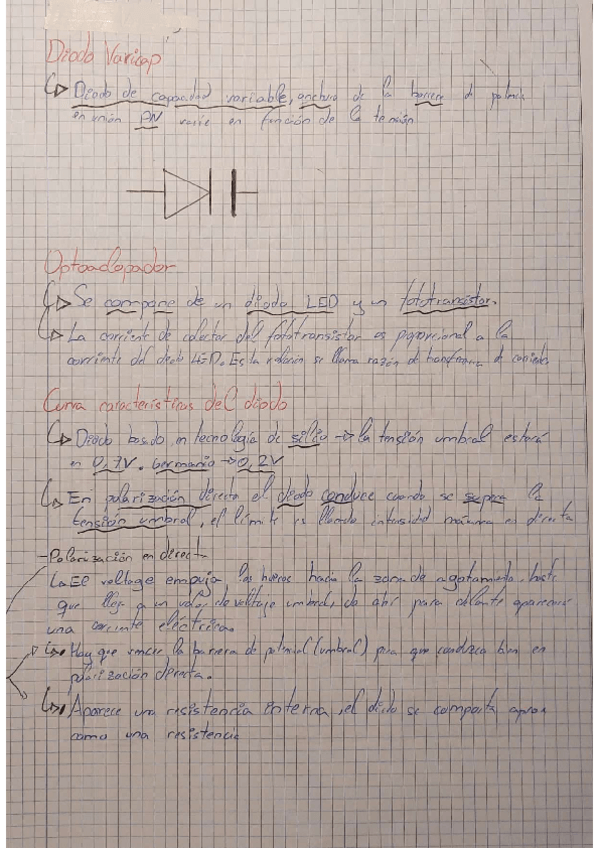 Diodo Varicap
Diodo de capacidad variable, anchura de la barrera de potencia
en unión PN varia en función de la tensión
Optoaclopador
Se compone de un diodo LED y un fototransistor.
La corriente de colector del fototransistor es proporcional a la
corriente del diodo LED. Esta relación se llama razón de transferencia de corriente
Curva características del diodo
Diodo basado en tecnología de silicio → la tensión umbral estará
en 0,7V. Germanio → 0,2V
En polarización directa el diodo conduce cuando se supera la
tensión umbral, el límite es llamado intensidad máxima en directa
-Polarización en directa
El voltage empuja los huecos hacia la zona de agotamiento, hasta
que llega a un valor de voltaje umbral, de ahí para delante aparecerá
una corriente eléctrica.
Hay que vencer la barrera de potencial (umbral) para que conduzca bien en
polarización directa.
Aparece una resistencia interna, el diodo se comporta aprox
como una resistencia